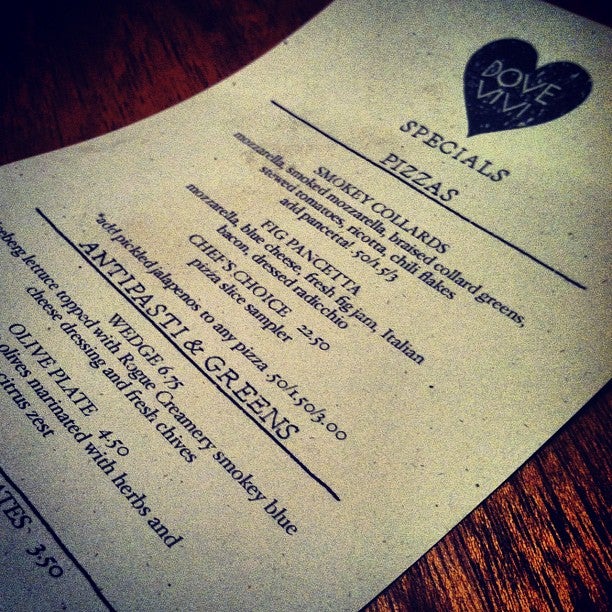 DOVE
VIVI
SPECIALS
PIZZAS
SMOKEY COLLARDS
mozzarella, smoked mozzarella, braised collard greens,
stewed tomatoes, ricotta, chili flakes
add pancetta! .50/1.5/3
FIG PANCETTA
mozzarella, blue cheese, fresh fig jam, Italian
bacon, dressed radicchio
CHEF'S CHOICE 22.50
pizza slice sampler
*add pickled jalapenos to any pizza .50/1.50/3.00
ANTIPASTI & GREENS
WEDGE 6.75
lettuce topped with Rogue Creamery smokey blue
cheese dressing and fresh chives
OLIVE PLATE 4.50
olives marinated with herbs and
citrus zest
3.50